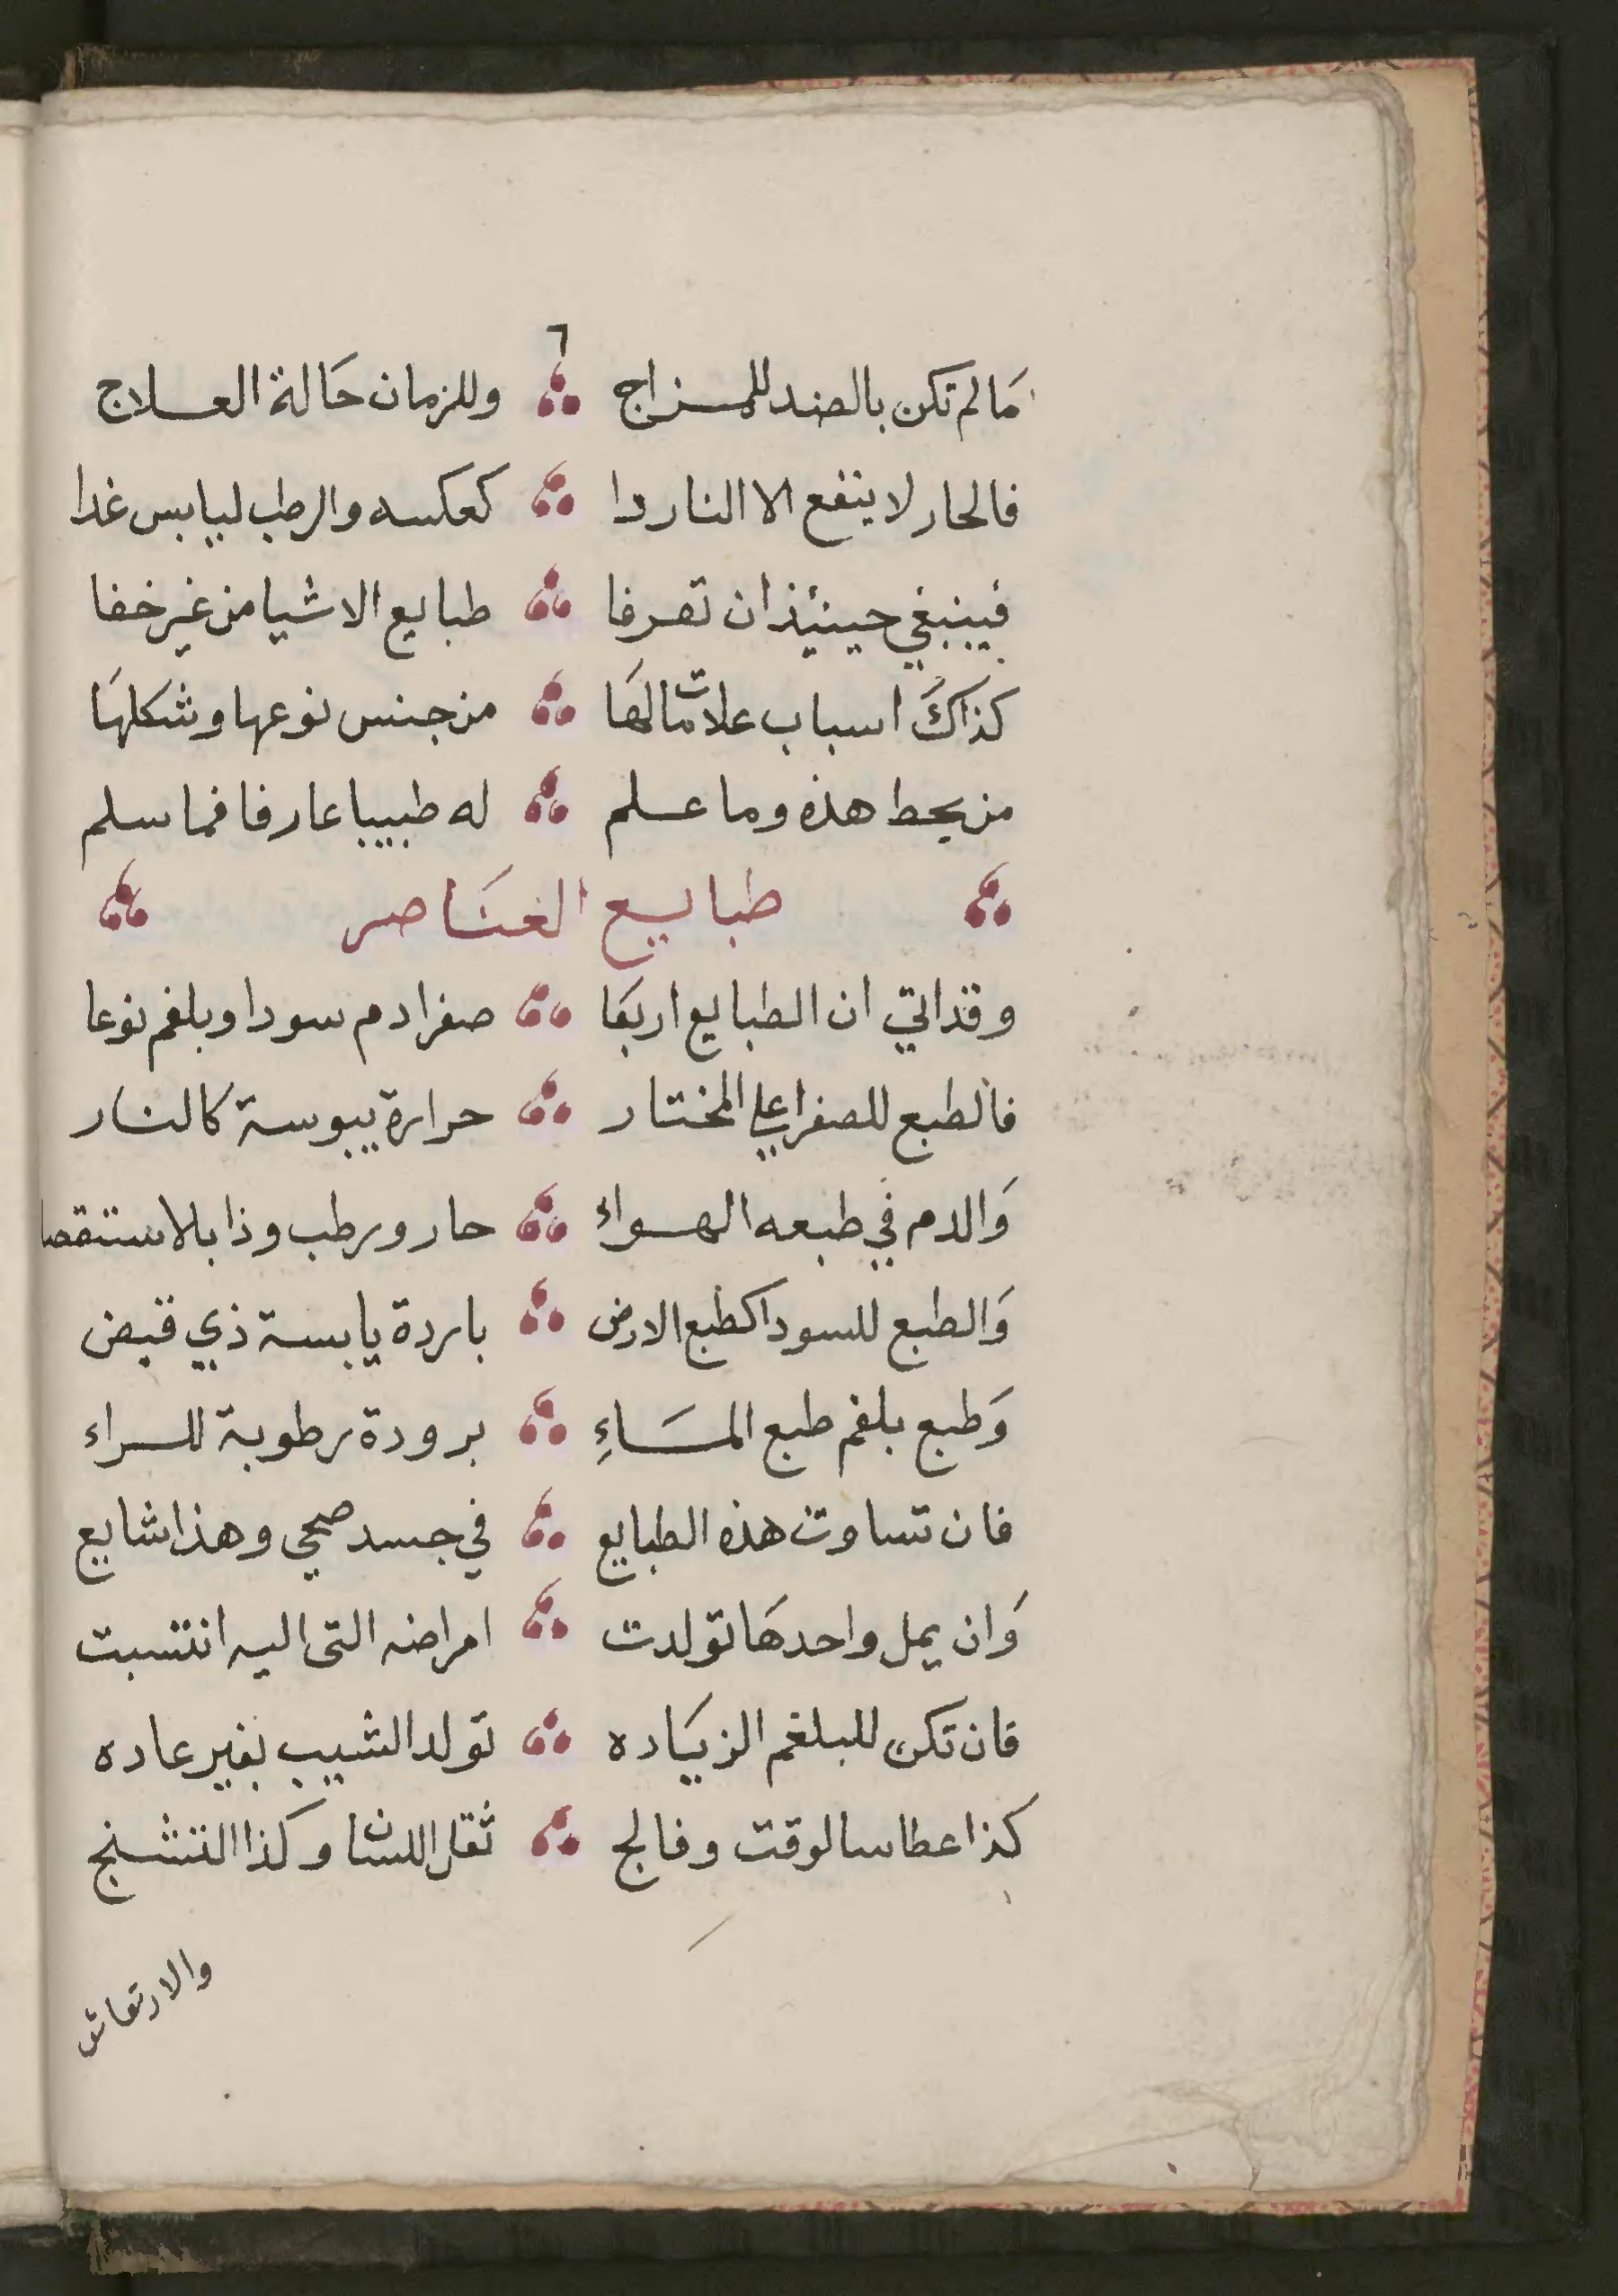 ٦
مَا لم تكن بالضد للمزاج وللزمان حَالة العلاج
فالحار لا ينفع الا الناردا كعكسه والرطب ليابس غدا
فينبغي حينيئذ ان تعرفا طبايع الاشيا من غير خفا
كذاكَ اسباب علاماتٌ لهَا من جنس نوعها وشكلهَا
من يحط هذه وما علم له طبيبا عارفا فما سلم
طبايع العنَاصر
وقداتي ان الطبايع اربعَا صفرا دم سودا وبلغم نوعا
فالطبع للصفرا علي المختار حرارة يبوسة كالنار
وَالدم في طبعه الهواء حار ورطب وذا بلا استقصا
وَالطبع للسودا كطبع الارض باردة يابسة ذي قبض
وَطبع بلغم طبع المَاءِ برودة رطوبة للراء
فان تساوت هذه الطبايع في جسد صحي وهذا شايع
وَان يمل واحدهَا تولدت امراضه التى اليه انتسبت
فان تكن للبلغم الزيَاده تولد الشيب بغير عاده
كذا عطاسا لوقت وفالج ثقل اللسان وكذا التشنج
والارتعاش